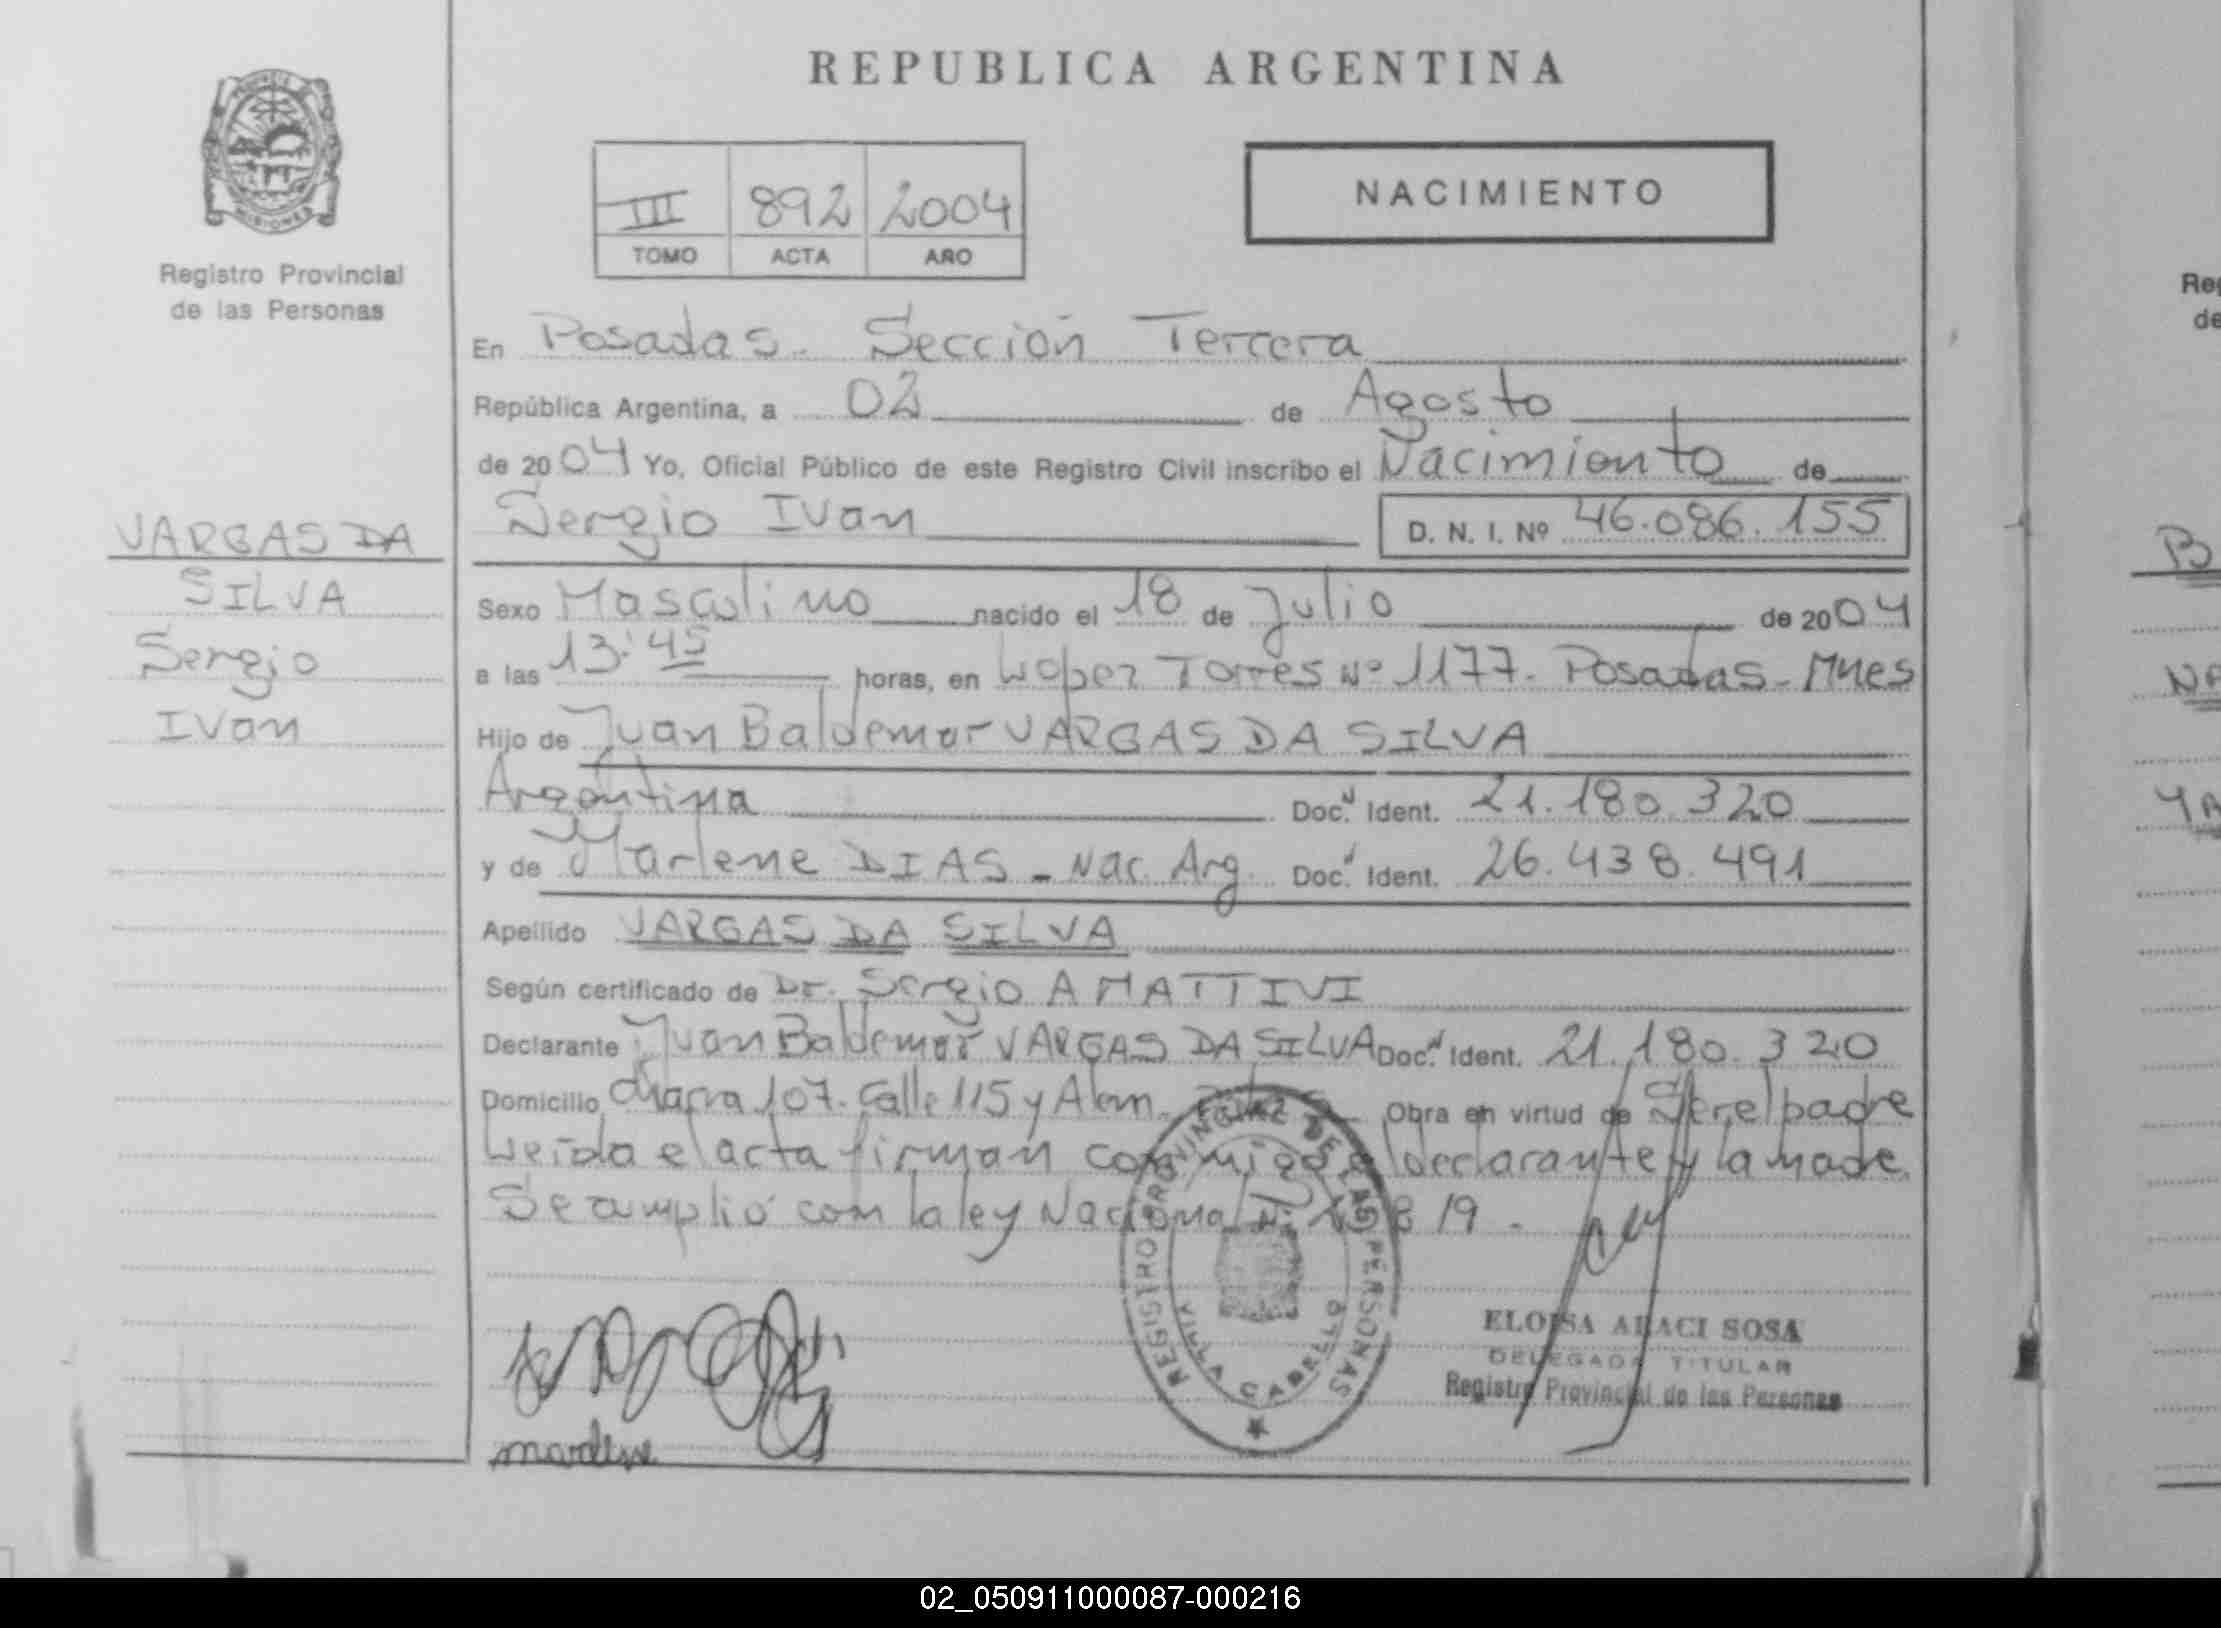 REPUBLICA ARGENTINA
PROVINCIA
MISIONES
Registro Provincial
de las Personas
III 892 2004
TOMO ACTA AÑO
NACIMIENTO
En Posadas. Sección Tercera
República Argentina, a 02 de Agosto
de 2004 Yo, Oficial Público de este Registro Civil inscribo el Nacimiento de
Sergio Ivan D. N. I. Nº 46.086.155
VARGAS DA
SILVA
Sergio
Ivan
Sexo Masculino nacido el 18 de Julio de 2004
a las 13:45 horas, en López Torres Nº 1177. Posadas - Mnes
Hijo de Juan Baldemor VARGAS DA SILVA
Argentina Doc. Ident. 21.180.320
y de Marlene DIAS - Nac. Arg. Doc. Ident. 26.438.491
Apellido VARGAS DA SILVA
Según certificado de Dr. Sergio A MATTIVI
Declarante Juan Baldemor VARGAS DA SILVA Doc. Ident. 21.180.320
Domicilio Chacra 107. Calle 115 y Alem. Obra en virtud de Ser el padre
Leída el acta firman conmigo el declarante y la madre.
Se amplió con la ley Nacional Nº 25819.
REGISTRO PROVINCIAL DE LAS PERSONAS
VILLA CABELLO
ELOISA ARACI SOSA
DELEGADA TITULAR
Registro Provincial de las Personas
marlene
Reg
de
B
NA
YA
02_050911000087-000216